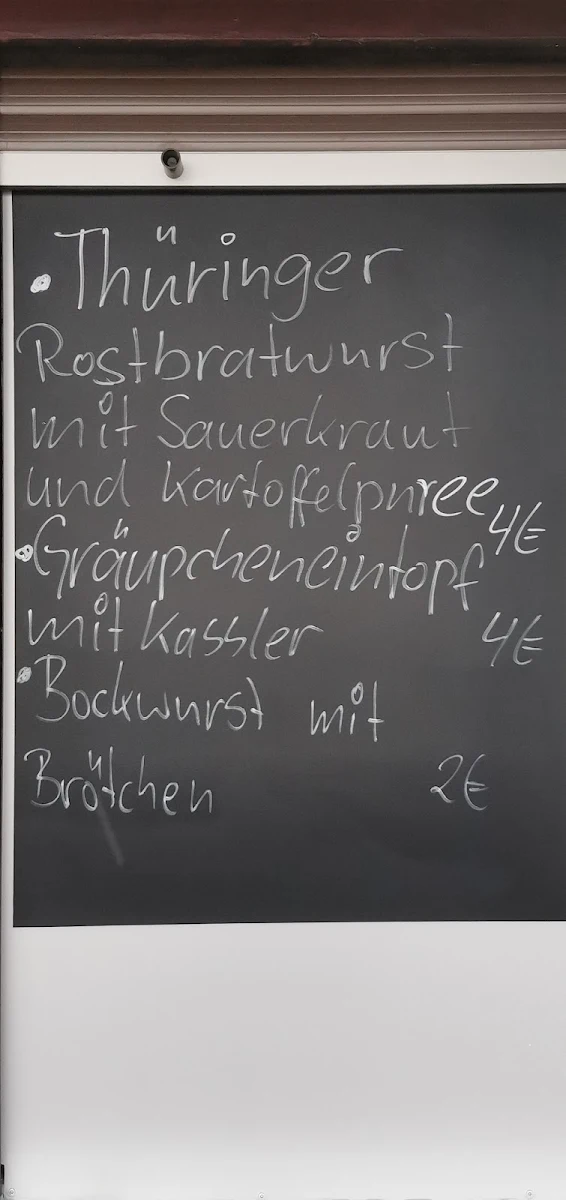 • Thüringer
Rostbratwurst
mit Sauerkraut
und Kartoffelpuree 4€
• Gräupcheneintopf
mit Kassler 4€
• Bockwurst mit
Brötchen 2€